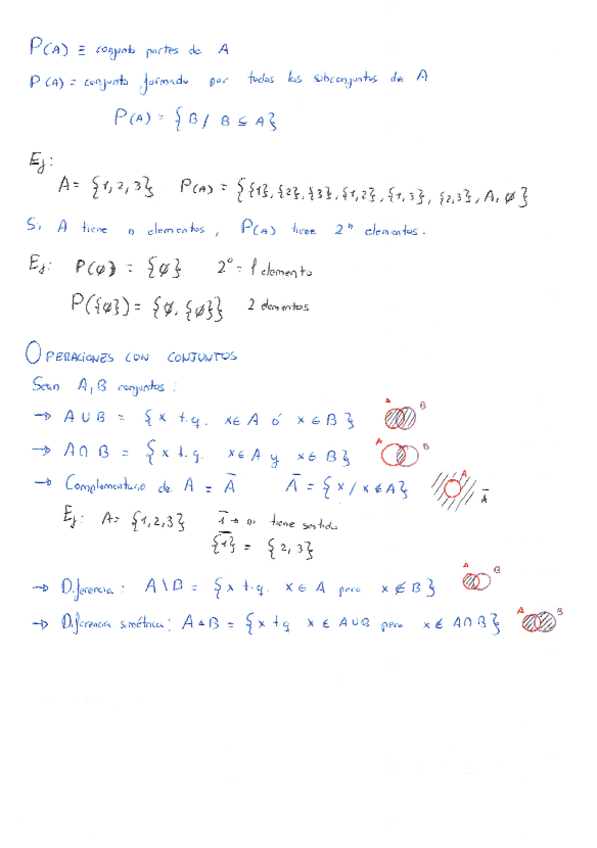 P(A) ≡ conjunto partes de A
P(A) = conjunto formado por todos los subconjuntos de A
P(A) = { B / B ⊆ A }
Ej:
A = {1, 2, 3} P(A) = {{1}, {2}, {3}, {1,2}, {1,3}, {2,3}, A, ∅}
Si A tiene n elementos, P(A) tiene 2ⁿ elementos.
Ej: P(∅) = {∅} 2⁰ = 1 elemento
P({∅}) = {∅, {∅}} 2 elementos
OPERACIONES CON CONJUNTOS
Sean A, B conjuntos:
→ A ∪ B = { x t.q. x ∈ A ó x ∈ B } A B
→ A ∩ B = { x t.q. x ∈ A y x ∈ B } A B
→ Complementario de A = Ā Ā = { x / x ∉ A } A Ā
Ej: A = {1, 2, 3} 1̄ → no tiene sentido
{1}̄ = {2, 3}
→ Diferencia: A \ B = { x t.q. x ∈ A pero x ∉ B } A B
→ Diferencia simétrica: A ▵ B = { x t q x ∈ A ∪ B pero x ∉ A ∩ B } A B